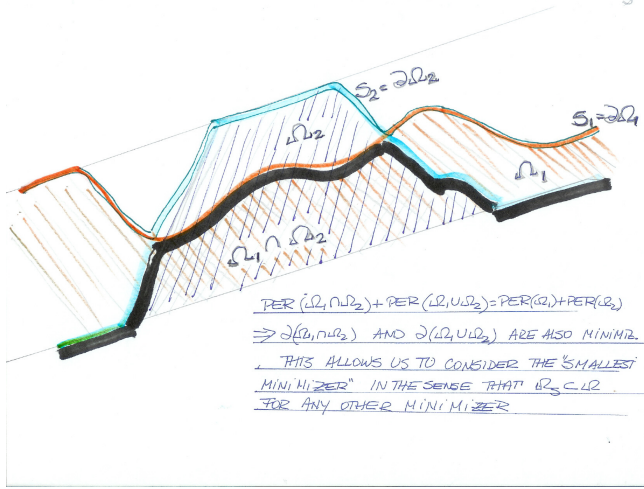 S₂=∂Ω₂
S₁=∂Ω₁
Ω₂
Ω₁
Ω₁∩Ω₂
PER(Ω₁∩Ω₂)+PER(Ω₁∪Ω₂)=PER(Ω₁)+PER(Ω₂)
⇒ ∂(Ω₁∩Ω₂) AND ∂(Ω₁∪Ω₂) ARE ALSO MINIMIZ.
. THIS ALLOWS US TO CONSIDER THE "SMALLEST
MINIMIZER" IN THE SENSE THAT Ω_S⊂Ω
FOR ANY OTHER MINIMIZER